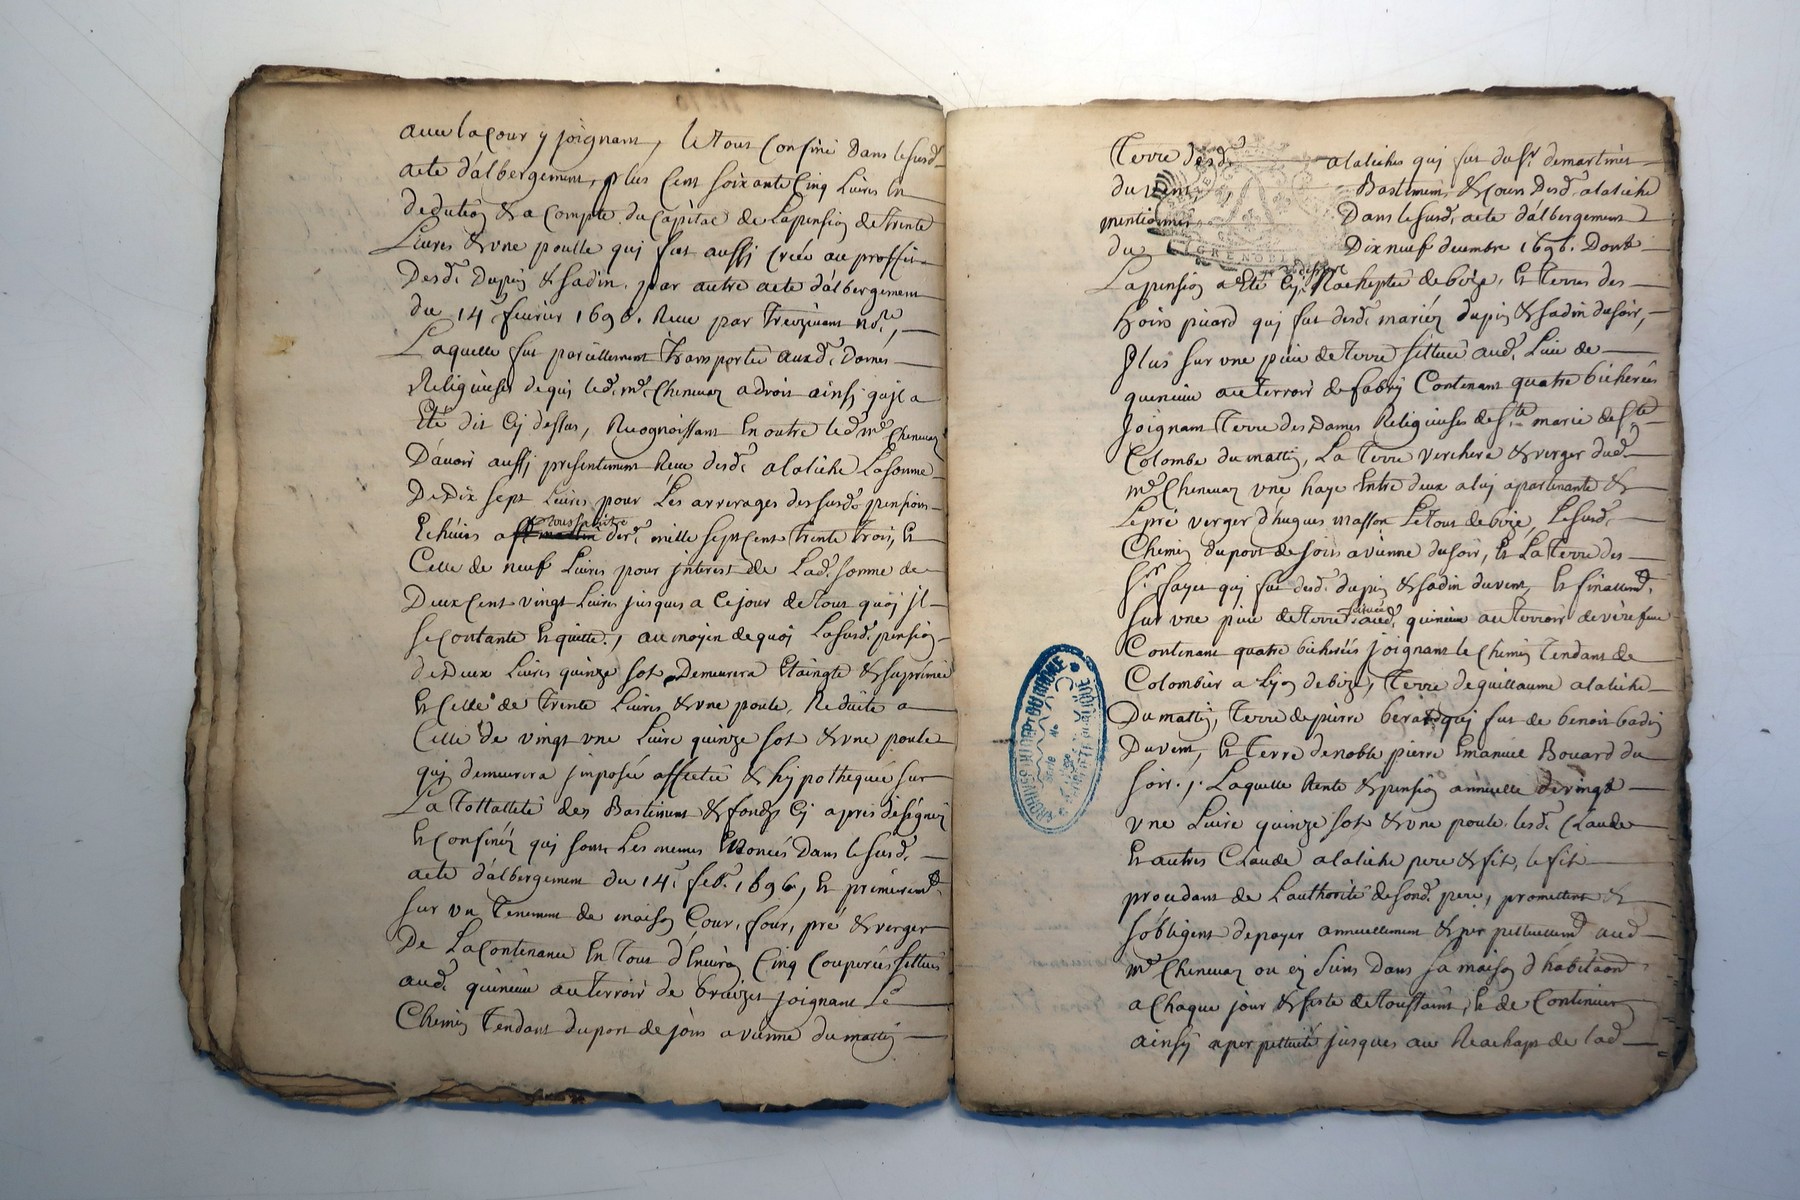 avec la Cour y joignant, le tout Confiné Dans le susd.
acte d'albergement, plus Cent soixante Cinq Livres En
deduōn & a Compte du Capital de La pension de trente
Livres & une poulle quj fut aussj Créée au proffit
Desd. Dupin & sadin. par autre acte d'albergement
du 14e fevrier 1696. Receu par Trevzivant nore,
Laquelle fut pareillement transportée auxd. Dames
Religieuses de quj led. me. Chenevaz a droit ainsj qu'jl a
Eté dit Cy dessus, Recognoissant En outre led. me Chenevaz
D'avoir aussj presentement Receu desd. alaliche La somme
De Dix sept Livres pour Les arrerages des susd. pensions
Echües a la toussaintz der. mille sept Cent trente trois, Et
Celle de neuf Livres pour jnterest de Lad. somme de
Deux Cent vingt Livres jusques a Ce jour de tout quoj jl
se Contante Et quitte., au moyen de quoj La susd. pension
de Deux Livres quinze sol Demeurera Etaingte & suprimée
Et Celle de trente Livres & une poule. Reduite a
Celle de vingt une Livre quinze sol & une poule
quj demeurera jmposée affectée & hypothequée sur
La tottallité des Bastiment & fonds Cy apres désignez
Et Confinéz quj sont Les memes Enoncés Dans le susd.
acte d'albergement du 14e. feb. 1696, Et premieremt
sur un Tenement de maison Cour, four, pré & verger
De La Contenance En Tout d'Environ Cinq Couperées sittués
aud. quinieu au terroir de braizet joignant Le
Chemin Tendant du port de join a vienne du mattin
Terre desd. alaliche quj fut du sr. demartinet
du vent, Bastiment & Cour Desd. alaliche
mentionnés Dans le susd. acte d'albergement
du Dix neuf decembre 1696. Dont
La pension a Eté Cy dessus Racheptée de bize, Et Terres des
hoirs picard quj fut desd. mariéz dupin & sadin du soir,
Plus sur une piece de Terre sittuée aud. Lieu de
quinieu au terroir de fabry Contenant quatre bicherées
joignant Terre des Dames Religieuses de Ste marie de Ste
Colombe du mattin, La Terre verchere & verger dud.
me. Chenevaz une haye Entre deux a luj apartenante &
Le pré verger d'hugues masson Le tout de bize, Le susd.
Chemin du port de join a vienne du soir, Et La Terre des
srs. faye quj fut desd. dupin & sadin du vent, Et finallemt.
sur une piece de Terre située aud. quinieu au terroir de vere fine
Contenant quatre bicherées joignant le Chemin Tendant de
Colombier a Lyon de bize, Terre de guillaume alaliche
Du mattin, Terre de pierre berard quj fut de benoit badin
Du vent, Et Terre de noble pierre Emanuel Bouard du
soir., Laquelle Rente & pension annuelle de vingt
une Livre quinze sols & une poule. lesd. Claude
Et autres Claude alaliche pere & fils, le fils
procedant de L'authorité de sond. pere, promettent &
s'obligent de payer annuellement & perpetuellemt aud.
me. Chenevaz ou es siens Dans sa maison d'habitaōn
a Chaque jour & feste de toussaint, Et de Continuer
ainsy a perpettuité jusques au Reachapt de lad.
GRENOBLE
ARCHIVES DU DEPT DU RHONE